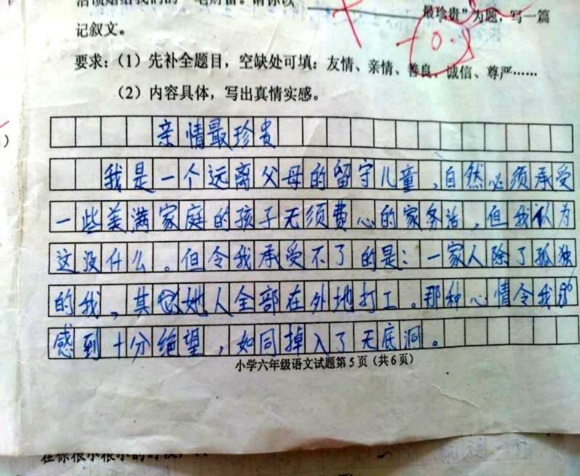 活馈赠给我们的一笔财富。请你以
最珍贵”为题，写一篇
记叙文。
要求：（1）先补全题目，空缺处可填：友情、亲情、善良、诚信、尊严……
（2）内容具体，写出真情实感。
亲情最珍贵
我是一个远离父母的留守儿童，自然必须承受
一些美满家庭的孩子无须费心的家务活，但我认为
这没什么。但令我承受不了的是：一家人除了孤独
的我，其她人全部在外地打工。那种心情令我的
感到十分绝望，如同掉入了无底洞。
小学六年级语文试题第5页（共6页）
在你很小很小的时候，